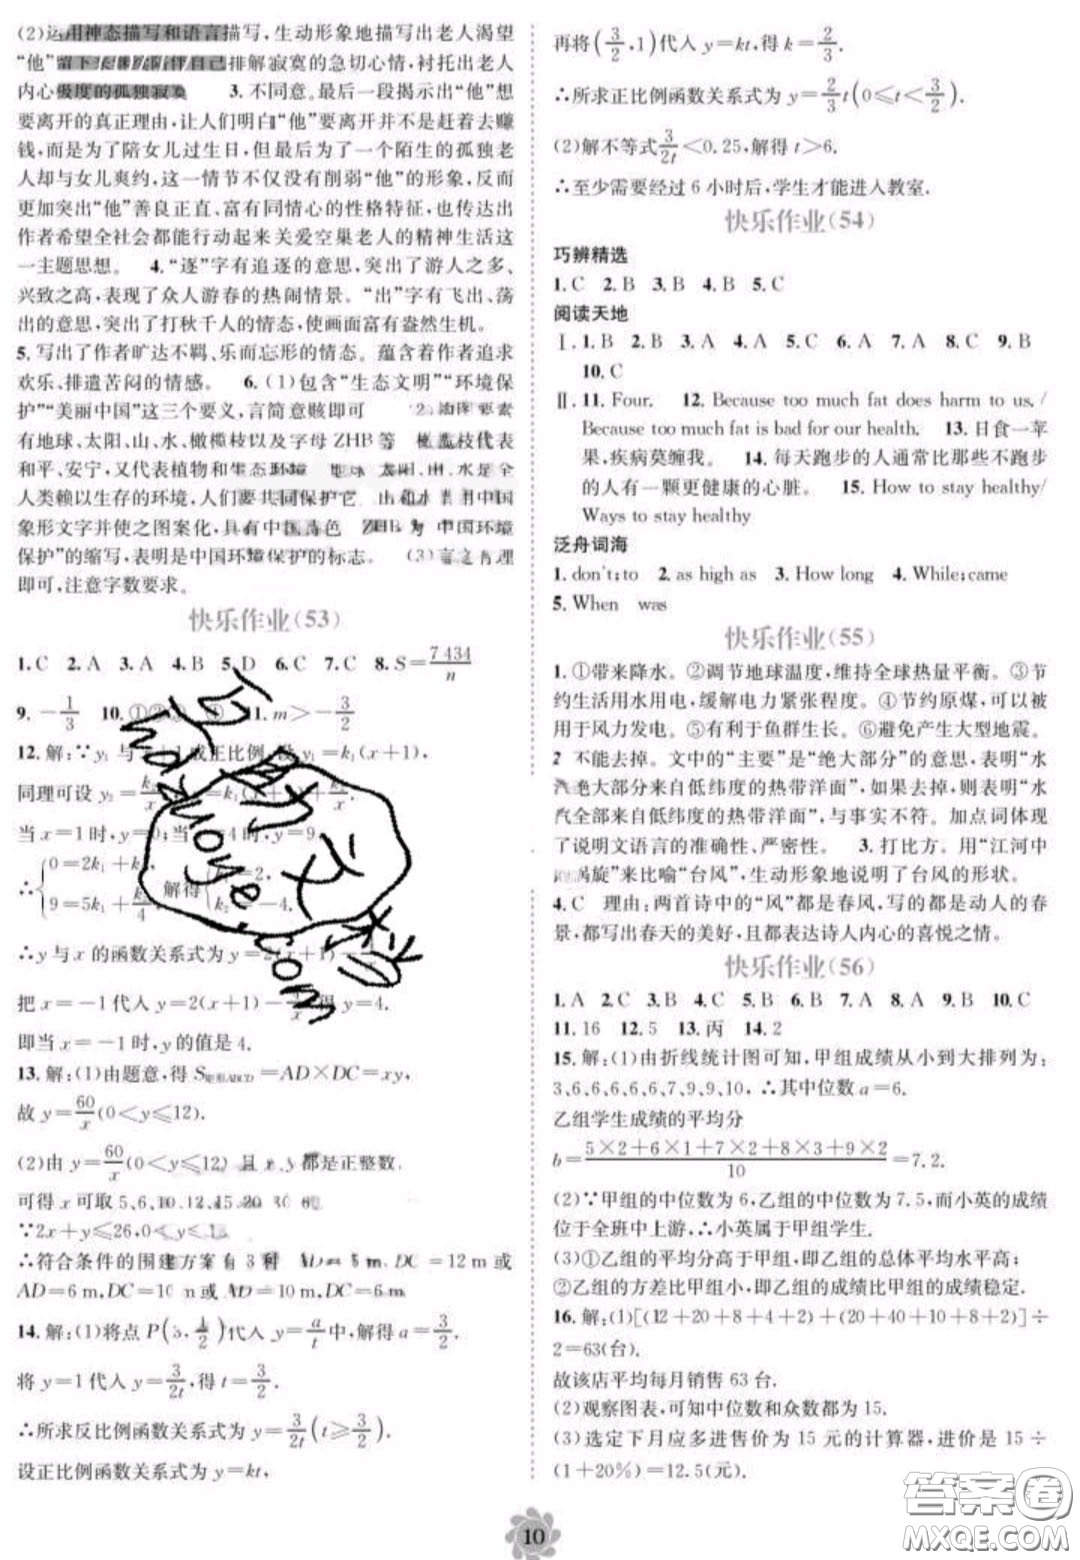 (2)运用神态描写和语言描写,生动形象地描写出老人渴望
“他”留下来陪伴自己排解寂寞的急切心情,衬托出老人
内心极度的孤独寂寞 3.不同意。最后一段揭示出“他”想
要离开的真正理由,让人们明白“他”要离开并不是赶着去赚
钱,而是为了陪女儿过生日,但最后为了一个陌生的孤独老
老人却与女儿爽约,这一情节不仅没有削弱“他”的形象,反而
更加突出“他”善良正直、富有同情心的性格特征,也传达出
作者希望全社会都能行动起来关爱空巢老人的精神生活这
一主题思想。 4.“逐”字有追逐的意思,突出了游人之多、
兴致之高,表现了众人游春的热闹情景。“出”字有飞出、荡
出的意思,突出了打秋千人的情态,使画面富有盎然生机。
5.写出了作者旷达不羁、乐而忘形的情态。蕴含着作者追求
欢乐、排遣苦闷的情感。 6.(1)包含“生态文明”“环境保
护”“美丽中国”这三个要义,言简意赅即可 (2)油图要素
有地球、太阳、山、水、橄榄枝以及字母 ZHB 等 橄榄枝代表
和平、安宁,又代表植物和生态环境 地球 太阳、山、水是全
人类赖以生存的环境,人们要共同保护它 山和水 用中国
象形文字并使之图案化,具有中国特色 ZHB 为“中国环境
保护”的缩写,表明是中国环境保护的标志。 (3)言之有理
即可,注意字数要求。
快乐作业(53)
1.C 2.A 3.A 4.B 5.D 6.C 7.C 8.S=7 434/n
9.-1/3 10.①②③ ④ 11.m>-3/2
12.解:∵y₁与x+1成正比例,设 y₁=k₁(x+1),
同理可设 y₂=k₂/x =k₁(x+1) k₂/x.
当 x=1时,y=0;当 =4时,y=9
∴{0=2k₁+k₂, 9=5k₁+k₂/4, 解得{k₁=2, k₂=-4.
∴y与x的函数关系式为 y=2(x+1)-
把 x=-1代入 y=2(x+1)-4/x 得 y=4.
即当 x=-1时,y的值是4.
13.解:(1)由题意,得 S矩形ABCD=AD×DC=xy,
故 y=60/x(0<y≤12).
(2)由 y=60/x(0<y≤12) 且x,y都是正整数,
可得 x 可取 5,6,10,12,15,20,30,60
∵2x+y≤26,0<y≤12
∴符合条件的围建方案有3种 AD=5 m,DC=12 m 或
AD=6 m,DC=10 m 或 AD=10 m,DC=6 m
14.解:(1)将点 P(3,1/2)代入 y=a/t 中,解得 a=3/2.
将 y=1代入 y=3/2t,得 t=3/2.
∴所求反比例函数关系式为 y=3/2t(t≥3/2).
设正比例函数关系式为 y=kt,
再将(3/2,1)代入 y=kt,得 k=2/3.
∴所求正比例函数关系式为 y=2/3t(0≤t<3/2).
(2)解不等式3/2t<0.25,解得 t>6.
∴至少需要经过6小时后,学生才能进入教室.
快乐作业(54)
巧辨精选
1.C 2.B 3.B 4.B 5.C
阅读天地
Ⅰ.1.B 2.B 3.A 4.A 5.C 6.A 7.A 8.C 9.B
10.C
Ⅱ.11. Four. 12. Because too much fat does harm to us. /
Because too much fat is bad for our health. 13.日食一苹
果,疾病莫缠我。 14.每天跑步的人通常比那些不跑步
的人有一颗更健康的心脏。 15. How to stay healthy/
Ways to stay healthy
泛舟词海
1. don't;to 2. as high as 3. How long 4. While;came
5. When was
快乐作业(55)
1.①带来降水。②调节地球温度,维持全球热量平衡。③节
约生活用水用电,缓解电力紧张程度。④节约原煤,可以被
用于风力发电。⑤有利于鱼群生长。⑥避免产生大型地震。
2 不能去掉。文中的“主要”是“绝大部分”的意思,表明“水
汽绝大部分来自低纬度的热带洋面”,如果去掉,则表明“水
汽全部来自低纬度的热带洋面”,与事实不符。加点词体现
了说明文语言的准确性、严密性。 3.打比方。用“江河中
的涡旋”来比喻“台风”,生动形象地说明了台风的形状。
4.C 理由:两首诗中的“风”都是春风,写的都是动人的春
景,都写出春天的美好,且都表达诗人内心的喜悦之情。
快乐作业(56)
1.A 2.C 3.B 4.C 5.B 6.B 7.A 8.A 9.B 10.C
11.16 12.5 13.丙 14.2
15.解:(1)由折线统计图可知,甲组成绩从小到大排列为:
3,6,6,6,6,6,7,9,9,10,∴其中位数 a=6.
乙组学生成绩的平均分
b=5×2+6×1+7×2+8×3+9×2/10=7.2.
(2)∵甲组的中位数为6,乙组的中位数为7.5,而小英的成绩
位于全班中上游,∴小英属于甲组学生.
(3)①乙组的平均分高于甲组,即乙组的总体平均水平高;
②乙组的方差比甲组小,即乙组的成绩比甲组的成绩稳定.
16.解:(1)[(12+20+8+4+2)+(20+40+10+8+2)]÷
2=63(台).
故该店平均每月销售63台.
(2)观察图表,可知中位数和众数都为15.
(3)选定下月应多进售价为15元的计算器,进价是15÷
(1+20%)=12.5(元).
10
答案圈
MXQE.COM